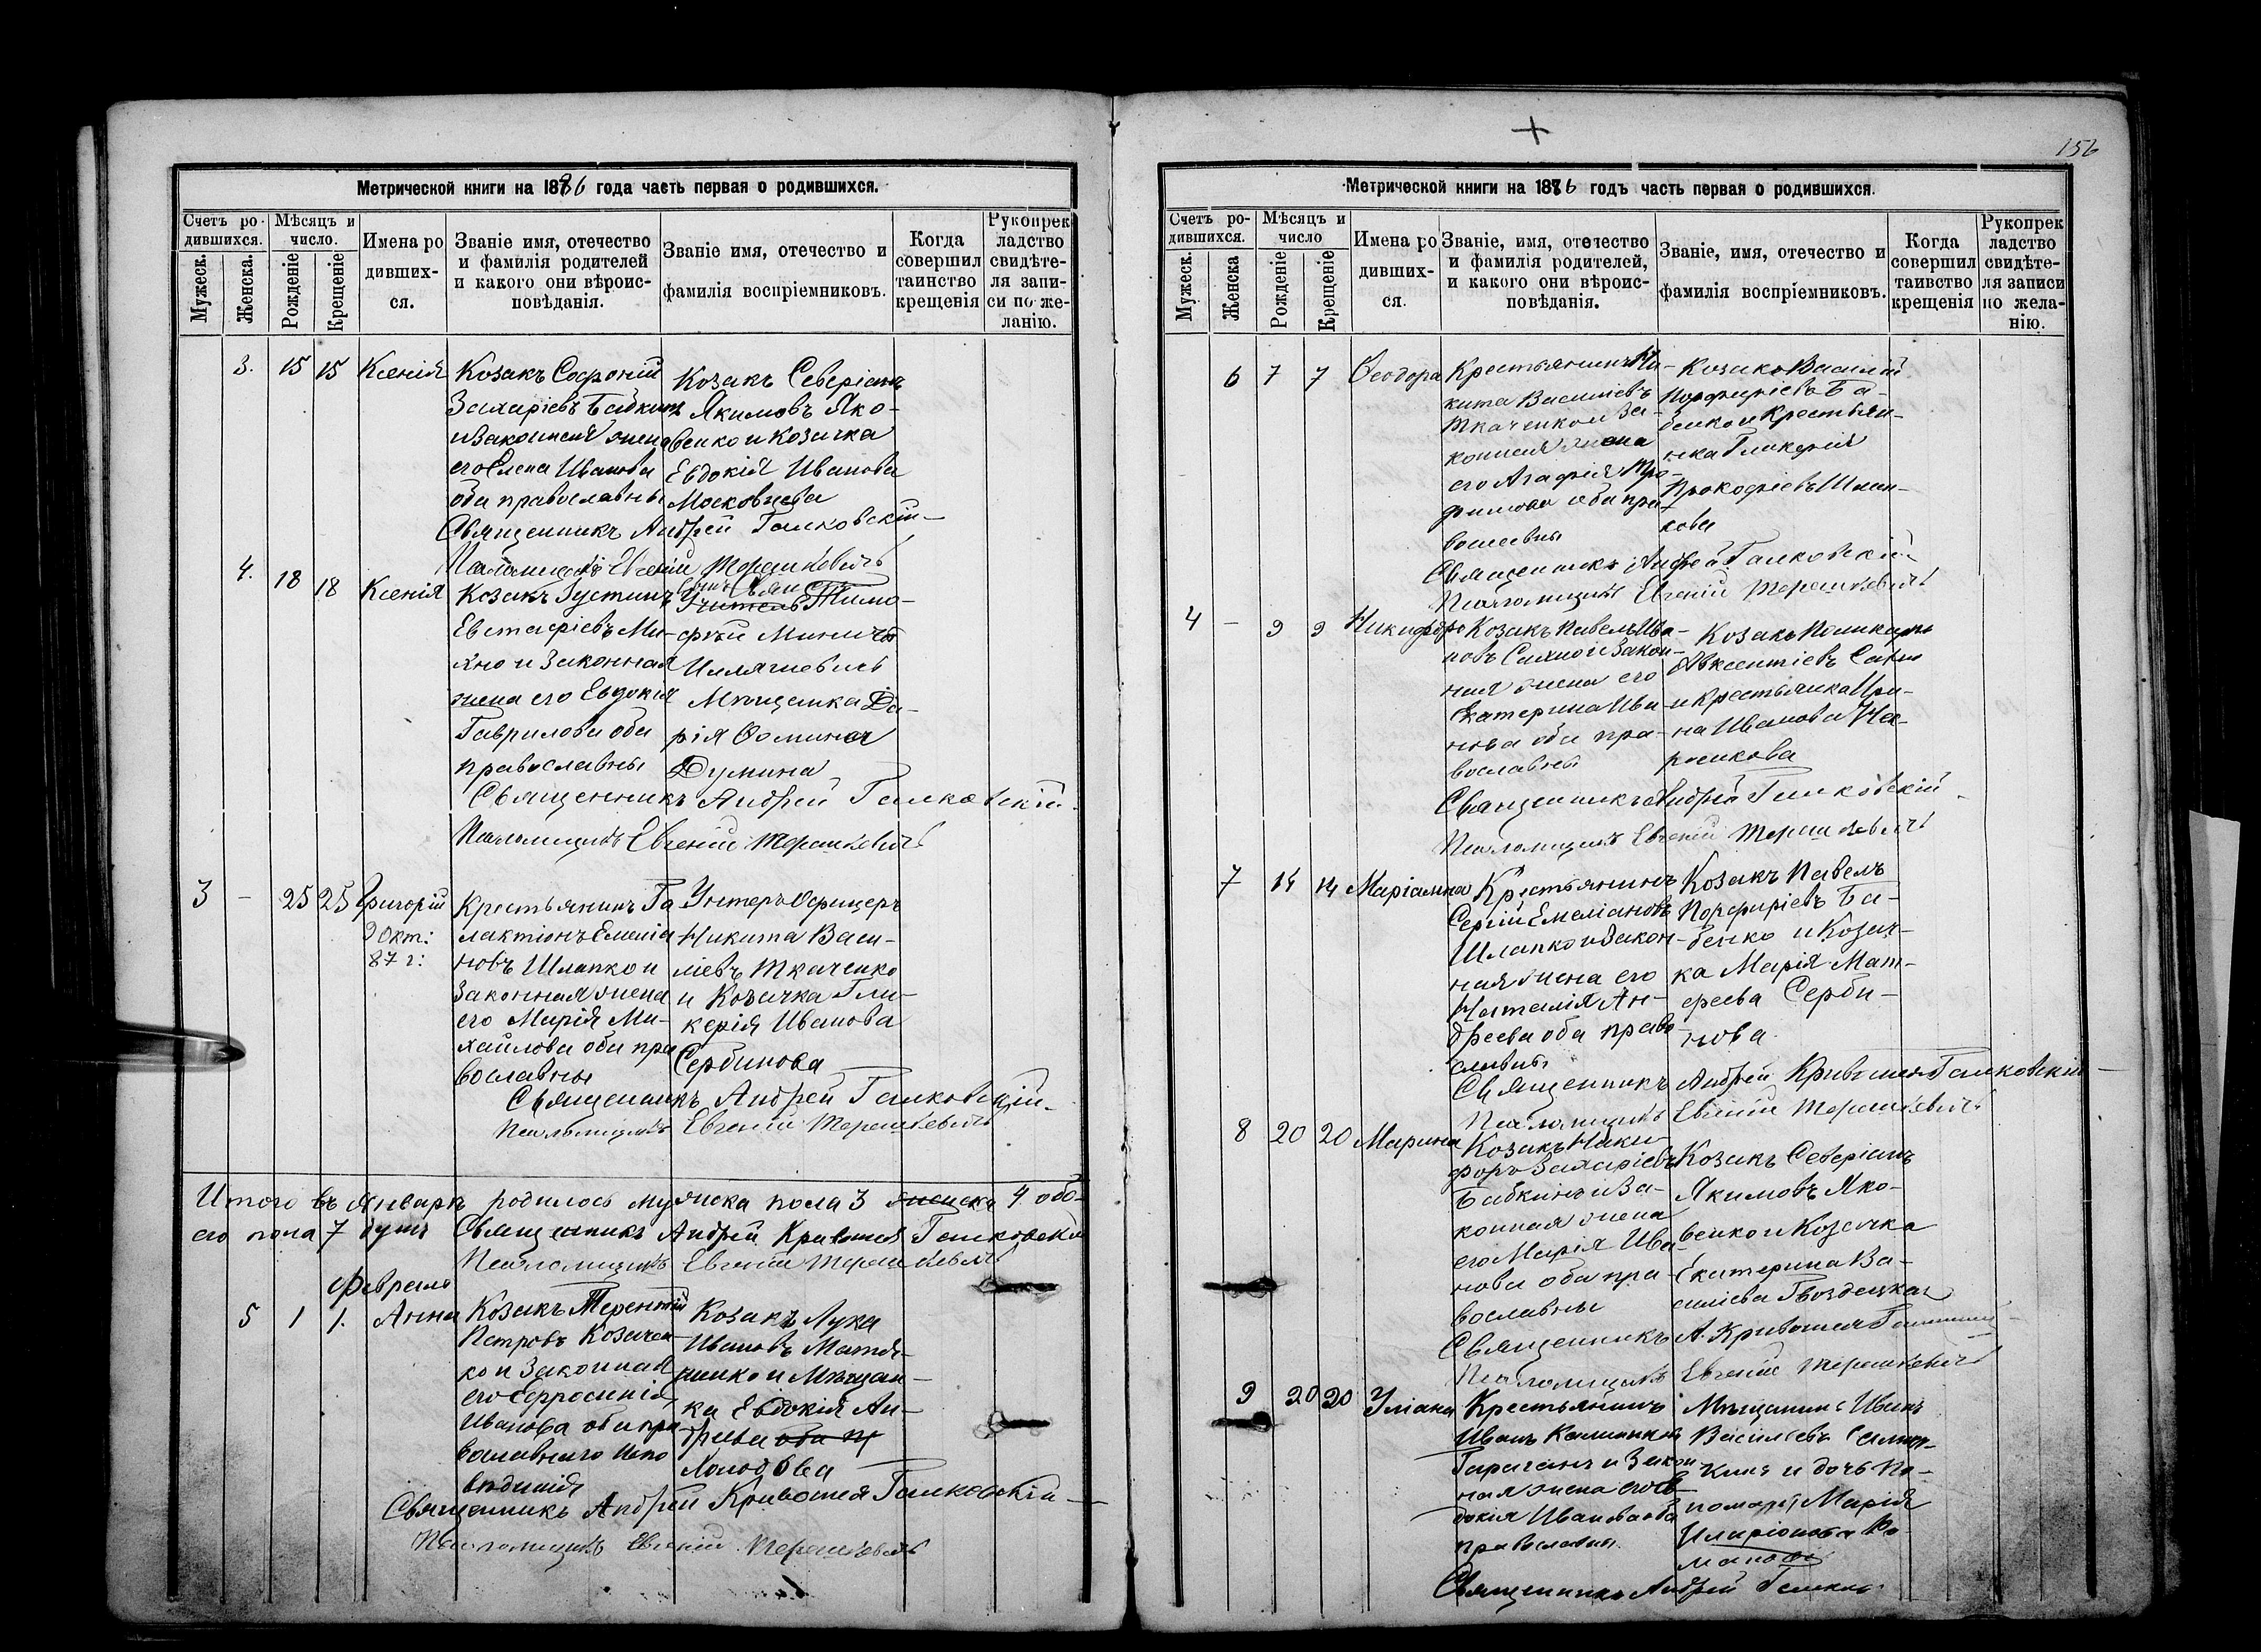 Метрической книги на 1886 года часть первая о родившихся.
Счетъ ро-
дившихся.
Мужеск.
Женска.
Мѣсяцъ и
число.
Рожденіе
Крещеніе
Имена ро
дивших-
ся.
Званіе имя, отечество
и фамилія родителей
и какого они вѣроис-
повѣданія.
Званіе имя, отечество и
фамилія воспріемниковъ.
Когда
совершил
таинство
крещенія
Рукопрек
ладство
свидѣте-
ля запи-
си по же-
ланію.
3. 15 15 Ксенія
Козакъ Софроній
Захаріевъ Бабкинъ
и Законная жена
его Елена Иванова
оба православны
Козакъ Северіанъ
Якимовъ Яко-
венко и Козачка
Евдокія Иванова
Московцева
Священникъ Андрей Галковскій
Псаломщикъ Евгеній Терешкевичъ
4. 18 18 Ксенія
Козакъ Густинъ
Евстафіевъ Ми-
хно и Законная
жена его Евдокія
Гаврилова оба
православны
Учитель Тимо-
фѣй Миничъ
Мѣщанка Да-
рія Ѳомина
Думина
Священникъ Андрей Галковскій
Псаломщикъ Евгеній Терешкевичъ
3 - 25 25 Григорій
9 окт:
87 г:
Крестьянинъ Га
лактіонъ Емеліа
новъ Шлапко и
Законная жена
его Марія Ми-
хайлова оба пра
вославны
Унтеръ Офицеръ
Никита Васи-
ліевъ Ткаченко
и Козачка Гли-
керія Иванова
Сербинова
Священникъ Андрей Галковскій
Псаломщикъ Евгеній Терешкевичъ
Итого въ Январѣ родилось мужска пола 3 женска 4 обо-
его пола 7 душъ Священникъ Андрей Кривошея Галковскій
Псаломщикъ Евгеній Терешкевичъ
Февраль
5 1 1. Анна
Козакъ Терентій
Петровъ Козачен-
ко и Законная
его Ефросинія
Иванова оба пра-
вославнаго испо
вѣданія
Козакъ Лука
Ивановъ Матя-
шенко и Мѣщан-
ка Евдокія Ан-
дреева оба п
Холодова
Священникъ Андрей Кривошея Галковскій
Псаломщикъ Евгеній Терешкевичъ
156
Метрической книги на 1886 годъ часть первая о родившихся.
Счетъ ро-
дившихся.
Мужеск.
Женска
Мѣсяцъ и
число
Рожденіе
Крещеніе
Имена ро
дивших-
ся.
Званіе, имя, отечество
и фамилія родителей,
и какого они вѣроис-
повѣданія.
Званіе, имя, отечество и
фамилія воспріемниковъ.
Когда
совершил
таивство
крещенія
Рукопрек
ладство
свидѣте-
ля записи
по жела-
нію.
6 7 7 Ѳеодора
Крестьянинъ Ни-
кита Василіевъ
Ткаченко и За-
конная жена
его Агафія Тро-
фимова оба пра-
вославны
Козакъ Василій
Порфиріевъ Ба-
бенко и Крестьян-
ка Гликерія
Прокофіевъ Шлап-
кова
Священникъ Андрей Галковскій
Псаломщикъ Евгеній Терешкевичъ
4 - 9 9 Никифоръ
Козакъ Павелъ Ива-
новъ Сахно и Закон-
ная жена его
Екатерина Ива-
нова оба пра-
вославны
Козакъ Поликарпъ
Авксентіевъ Сахно
и Крестьянка Ири-
на Иванова На-
Священникъ Андрей Галковскій
Псаломщикъ Евгеній Терешкевичъ
7 14 14 Маріамна
Крестьянинъ
Сергій Емеліановъ
Шлапко и Закон-
ная жена его
Наталія Ан-
дреева оба право-
славны
Козакъ Павелъ
Порфиріевъ Ба-
бенко и Козач-
ка Марія Мат-
феева Серби-
нова.
Священникъ Андрей Кривошея Галковскій
Псаломщикъ Евгеній Терешкевичъ
8 20 20 Марина
Козакъ Ники-
форъ Захаріевъ
Бабкинъ и За-
конная жена
его Марія Ива-
нова оба пра-
вославны
Козакъ Северіанъ
Якимовъ Яко-
венко и Козачка
Екатерина Ва-
силіева Гвоздецкая
Священникъ А. Кривошея Галковскій
Псаломщикъ Евгеній Терешкевичъ
9 20 20 Уліана
Крестьянинъ
Иванъ
Тараганъ и Закон
ная жена его Ев-
докія Иванова оба
православны
Мѣщанинъ Иванъ
Василіевъ
и дочь По-
номаря Марія
Иларіонова Ро-
манова
Священникъ Андрей Галковс.